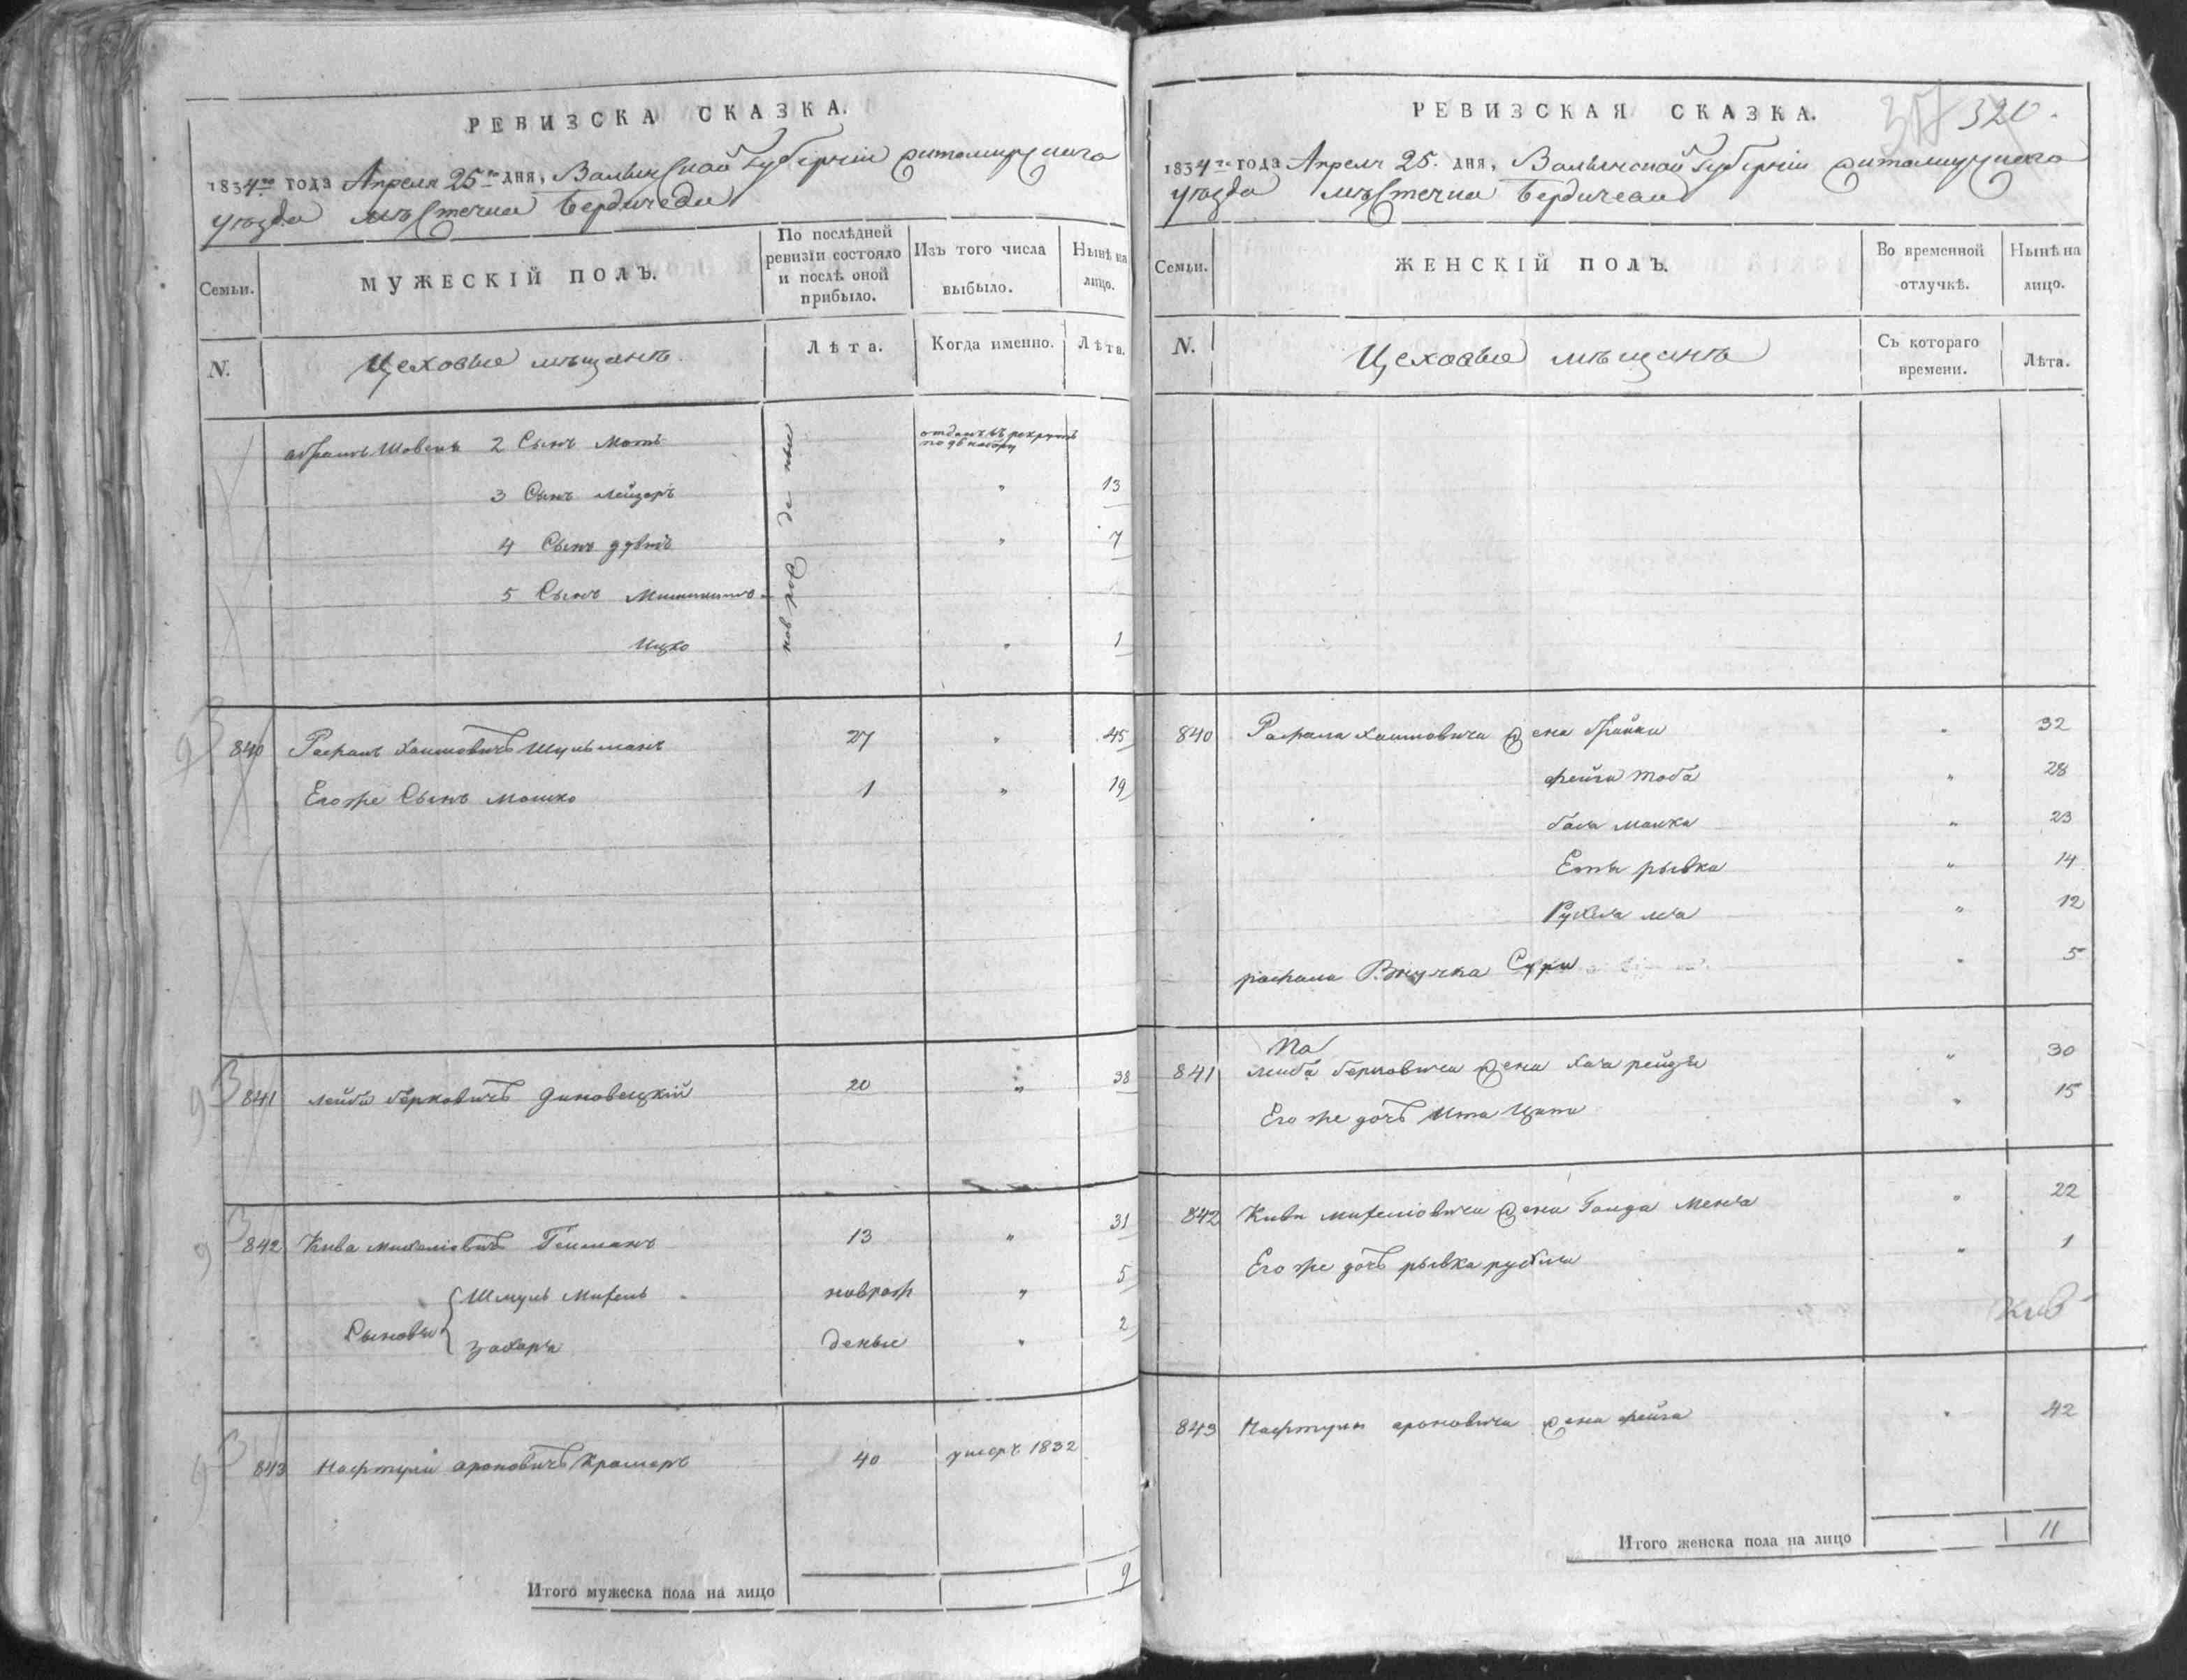 РЕВИЗСКА СКАЗКА.
1834го года Апреля 25го дня, Валынской Губерніи Житомирскаго
уѣзда мѣстечка Бердичева
Семьи.
МУЖЕСКІЙ ПОЛЪ.
По послѣдней ревизіи состояло и послѣ оной прибыло.
Изъ того числа выбыло.
Нынѣ на лицо.
N.
Цеховые мѣщанѣ
Лѣта.
Когда именно.
Лѣта.
новрожденые
2 Сынъ Мотъ отданъ въ рекруты
3 Сынъ Лейзоръ " 13
4 Сынъ " 7
5 Сынъ
Ицко " 1
840 Рафаил Хаимовичъ Шульманъ 27 " 45
Его же Сынъ Мошко 1 " 19
841 Лейба Берковичъ Диковецкій 20 " 38
842 Кива Михеліовичъ Гейманъ 13 " 31
Сыновья { Шмуль Михель новрож " 5
Захаръ деные " 2
843 Нафтули Ароновичъ Крамеръ 40 умеръ 1832
Итого мужеска пола на лицо 9
РЕВИЗСКАЯ СКАЗКА.
320.
1834го года Апреля 25. дня, Валынской Губерніи Житомирскаго
уѣзда мѣстечка Бердичева
Семьи.
ЖЕНСКІЙ ПОЛЪ.
Во временной отлучкѣ.
Нынѣ на лицо.
N.
Цеховые мѣщанѣ
Съ котораго времени.
Лѣта.
840 Рафала Хаимовича жена Брайна " 32
Фейга Тоба " 28
Бася Малка " 23
Еты рывка " 14
Рухля леа " 12
рафала Внучка Сура " 5
841 Лейба Берковича жена Хача рейзя " 30
Его же дочь Ита Ципа " 15
842 Кивы Михеліовича жена Голда Менча " 22
Его же дочь рывка рухля " 1
843 Нафтулы ароновича жена фейга " 42
Итого женска пола на лицо 11